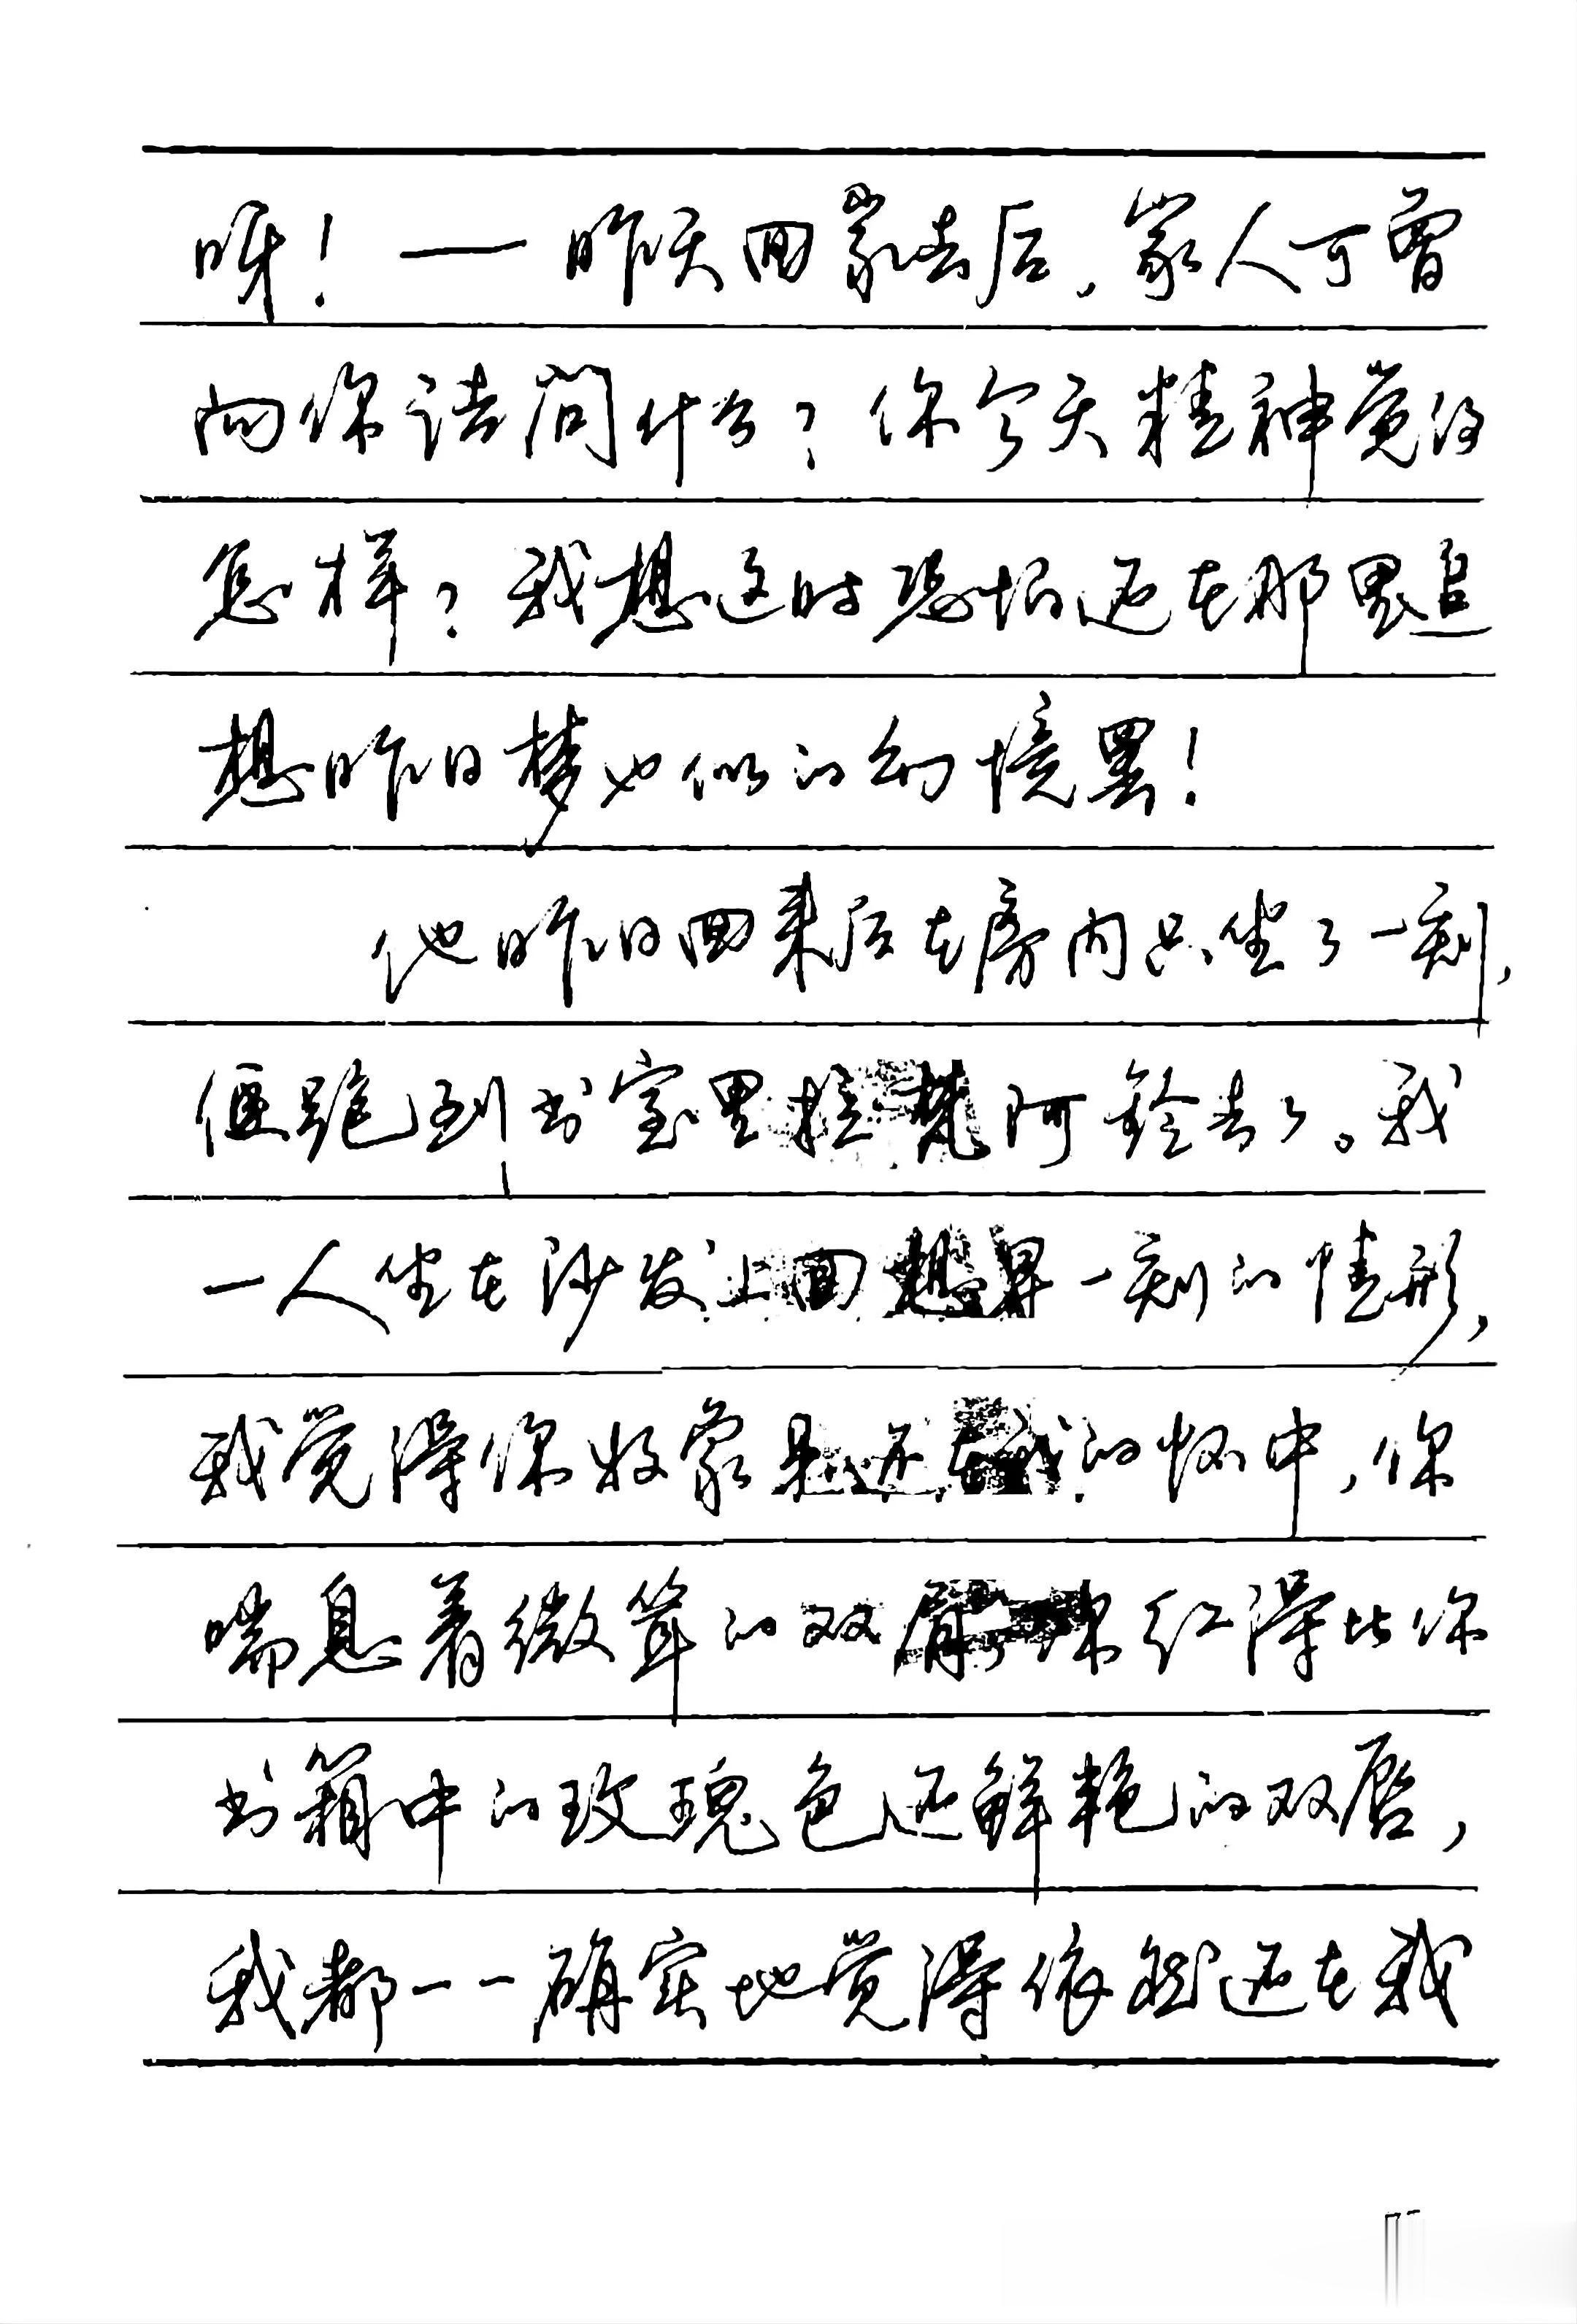 呀！—昨天回家去后，家人可曾
向你诘问什么？你今天精神觉得
怎样？我想这时恐怕还在那里追
想昨日梦也似的幻境罢！
他昨日回来后在房内只坐了一刻，
便跑到书室里拉梵阿铃去了。我
一人坐在沙发上回想早一刻的情形，
我觉得你好象是还在我的怀中，你
喘息着微耸的双肩，你红得比你
书籍中的玫瑰色还鲜艳的双唇，
我都一一确实地觉得依然还在我